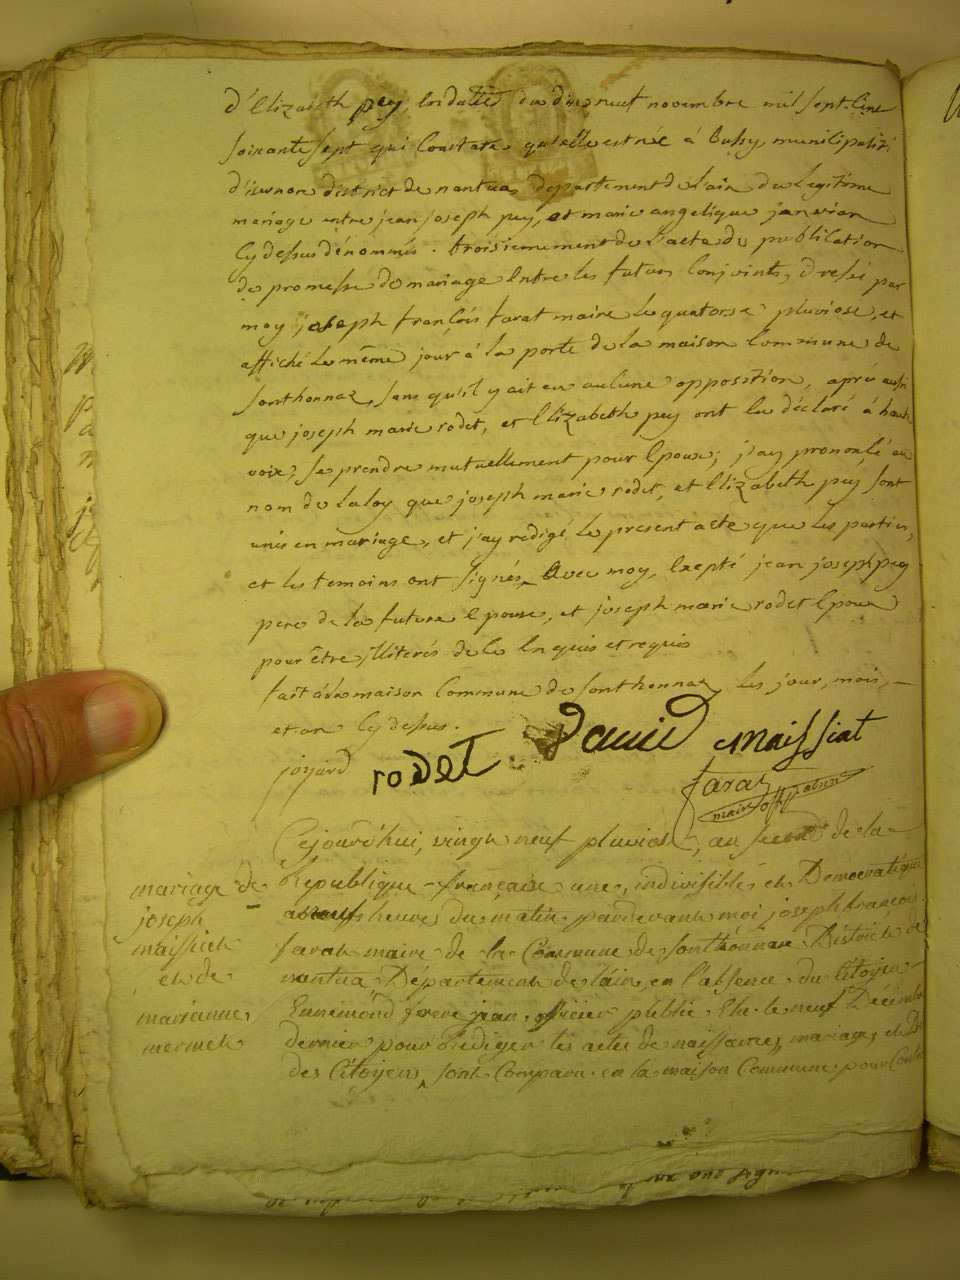 d'Elizabeth pey En datte du dix neuf novembre mil sept Cent
soixante sept qui Constate qu'elle est née à Bussy municipalité
d'isernon district de nantua departement de l'ain de legitime
mariage entre jean joseph pey, et marie angelique janvion
Cy dessus dénommés. troisiemement de l'acte de publication
de promesse de mariage Entre les futurs Conjoints, dressé par
moy joseph françois farat maire le quatorze pluviose, et
affiché le même jour à la porte de la maison Commune de
sonthonnaz, sans qu'il y ait eu aucune opposition, après aussi
que joseph marie rodet, et Elizabeth pey ont Eu déclaré à haute
voix, se prendre mutuellement pour Epoux; j'ay prononcé au
nom de la loy que joseph marie rodet, et Elizabeth pey sont
unis en mariage, et j'ay redigé le present acte que les parties,
et les temoins ont signés, avec moy, Excepté jean joseph pey
pere de la future Epouse, et joseph marie rodet Epoux
pour être illiterés de ce Enquis et requis
fait à la maison Commune de sonthonnaz les jour, mois,
et an Cy dessus.
david maissiat
joyard rodet
farat
maire off public
Cejourd'hui, vingt neuf pluviose, an second de la
mariage de Republique française une, indivisible, et Democratique
joseph heures du matin pardevant moi joseph françois
maissiat farat maire de la Commune de sonthonnax District de
et de nantua Département de l'ain, en l'absence du Citoyen
marianne Ennemond frere jean officier public Elu le neuf Décembre
mermet dernier pour rédiger les actes de naissances, mariages, et
des Citoyens, sont Comparu en la maison Commune pour